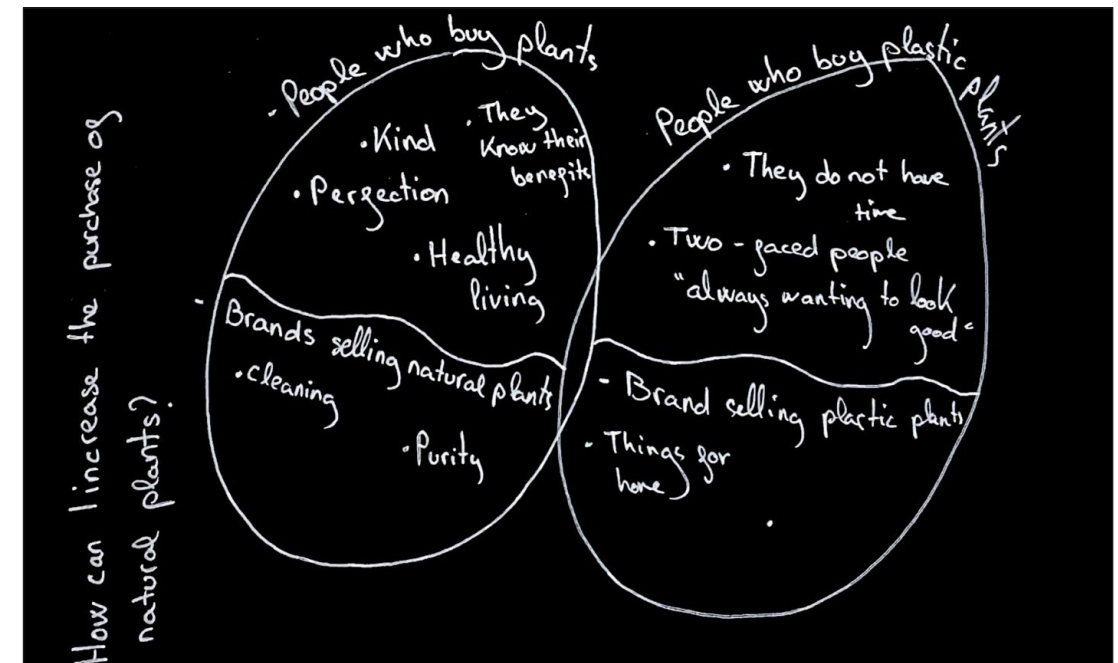 How can I increase the purchase og
natural plants?
- People who buy plants
• Kind
• They
Know their
benegits
• Pergection
• Healthy
living
- Brands selling natural plants
• Cleaning
• Purity
People who buy plastic plants
• They do not have
time
• Two-gaced people
"always wanting to look
good"
- Brand selling plastic plants
- Things gor
home